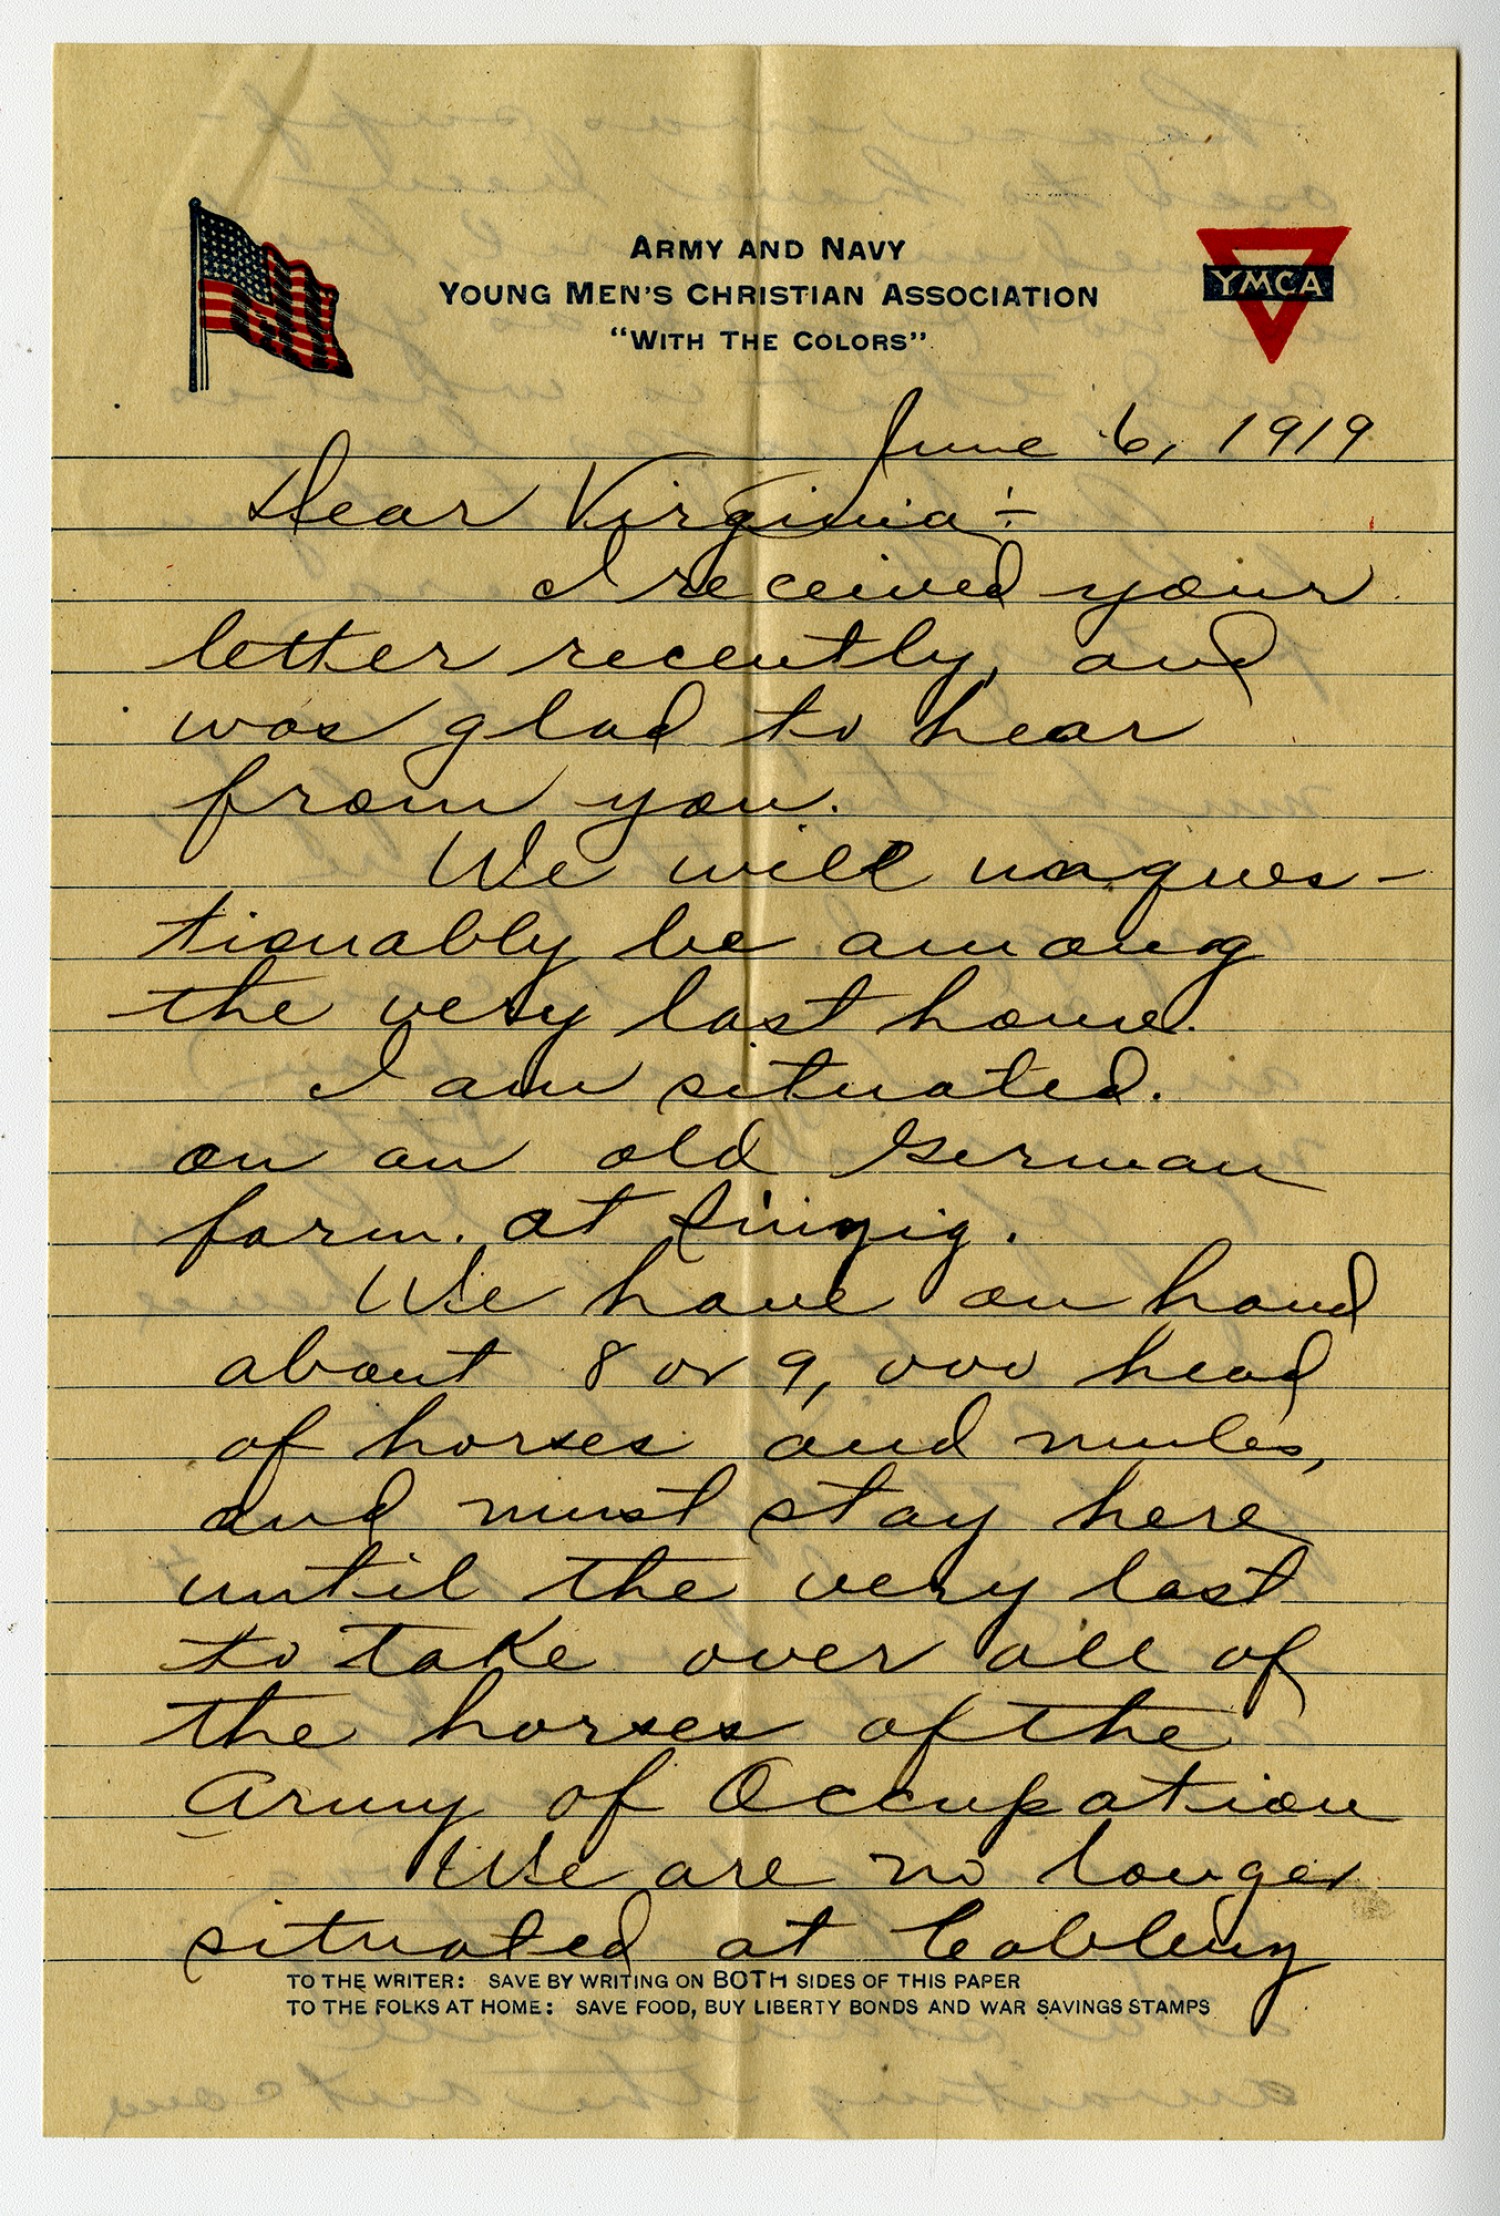 ARMY AND NAVY
YOUNG MEN'S CHRISTIAN ASSOCIATION
"WITH THE COLORS"
YMCA
June 6, 1919
Dear Virginia:-
I received your
letter recently, and
was glad to hear
from you.
We will unques-
tionably be among
the very last home.
I am situated.
on an old German
farm. at Sinzig.
We have on hand
about 8 or 9,000 head
of horses and mules,
and must stay here
until the very last
to take over all of
the horses of the
Army of Occupation
We are no longer
situated at Coblenz
TO THE WRITER: SAVE BY WRITING ON BOTH SIDES OF THIS PAPER
TO THE FOLKS AT HOME: SAVE FOOD, BUY LIBERTY BONDS AND WAR SAVINGS STAMPS